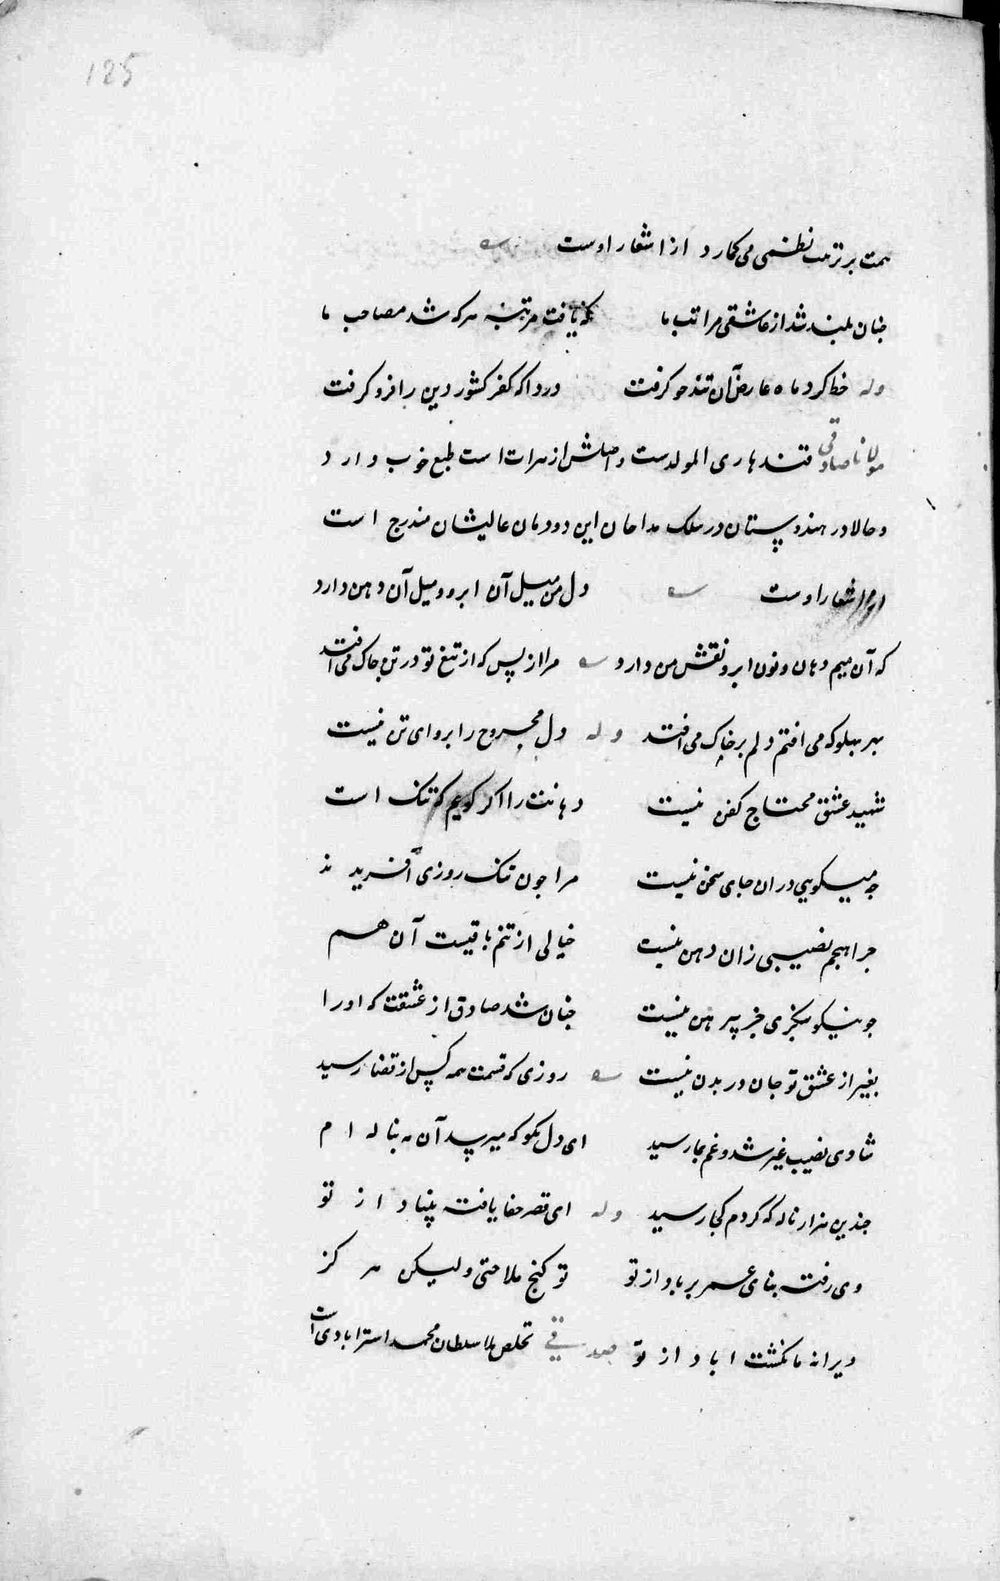 125
همت بر ترتیب نظمی می کمارد از اشعار اوست
چنان بلند شد از عاشقی مراتب ما که یافت مرتبه هر که شد مصاحب ما
وله خط کرد ماه عارض آن تندخو کرفت دردا که کفر کشور دین را فرو کرفت
مولانا صادقی قندهاری المولدست و اصلش از هرات است طبع خوب دارد
و حالا در هندوستان در سلک مداحان این دودمان عالیشان مندرج است
این اشعار اوست دل من میل آن ابرو و میل آن دهن دارد
که آن میم دهان و نون ابرو نقش من دارد مرا از پس که از تیغ تو در تن چاک می افتد
بهر پهلو که می افتم دلم بر خاک می افتد وله دل مجروح را پروای تن نیست
شهید عشق محتاج کفن نیست دهانت را اکر کویم که تنک است
چه میکویی در ان جای سخن نیست مرا چون تنک روزی آفریدند
چرا هیچم نصیبی زان دهن نیست خیالی از تنم باقیست آن هم
چو نیکو بنکری جز پیرهن نیست چنان شد صادق از عشقت که او را
بغیر از عشق تو جان در بدن نیست روزی که قسمت همه کس از قضا رسید
شادی نصیب غیر شد و غم بما رسید ای دل بکو که میرسد آن مه بناله ام
چندین هزار ناله که کردم کجا رسید وله ای قصر جفا یافته بنیاد از تو
وی رفته بنای عمر بر باد از تو تو کنج ملاحتی ولیکن هر کز
ویرانه ما نکشت اباد از تو صدقی تخلص ملا سلطان محمد استرابادی است